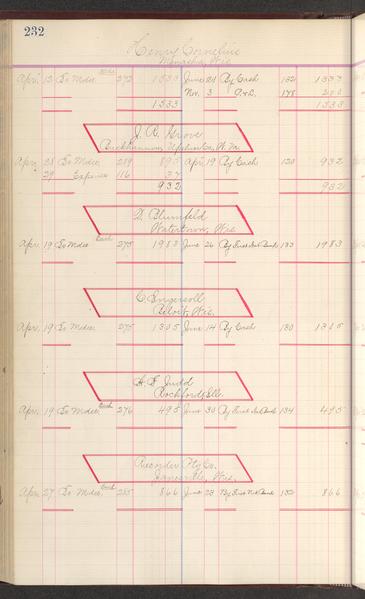 232
Henry Cornelius
Menasha, Wis
Apr. 12 To Mdse. 272 1333 June 28 By Cash 132 1333
Nov. 3 178
1333 1333
J. R. Grove
Buckhannon, Upshur Co, W. Va.
Apr. 28 To Mdse. 289 895 Apr. 19 By Cash 120 932
29 Expense 116 37
932 932
D. Blumfeld
Watertown, Wis
Apr. 19 To Mdse 275 1983 June 26 By First Nat Bank 133 1983
C. Ingersoll
Beloit, Wis.
Apr. 19 To Mdse. 275 1305 June 14 By Cash 130 1305
H. F. Judd
Rockford, Ill.
Apr. 19 To Mdse. 276 495 June 30 By First Nat Bank 134 495
Recorder Ptg Co.
Janesville, Wis.
Apr. 27 To Mdse. 285 866 June 23 By First Nat Bank 132 866